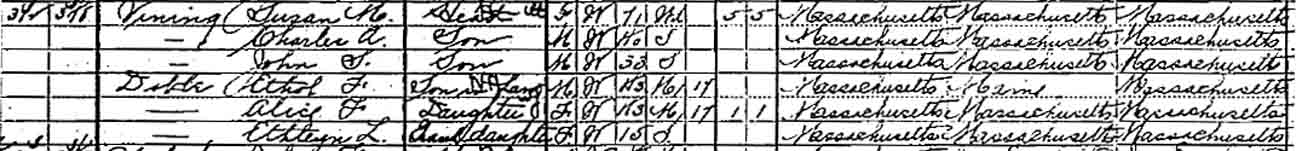 Vining Susan M. Head F W 71 Wd 5 5 Massachusetts Massachusetts Massachusetts
— Charles A. Son M W 40 S Massachusetts Massachusetts Massachusetts
— John S. Son M W 33 S Massachusetts Massachusetts Massachusetts
Ethol F. Son M W 43 M 17 Massachusetts Maine Massachusetts
— Alice F Daughter F W 43 M 17 1 1 Massachusetts Massachusetts Massachusetts
— L. Granddaughter F W 15 S. Massachusetts Massachusetts Massachusetts